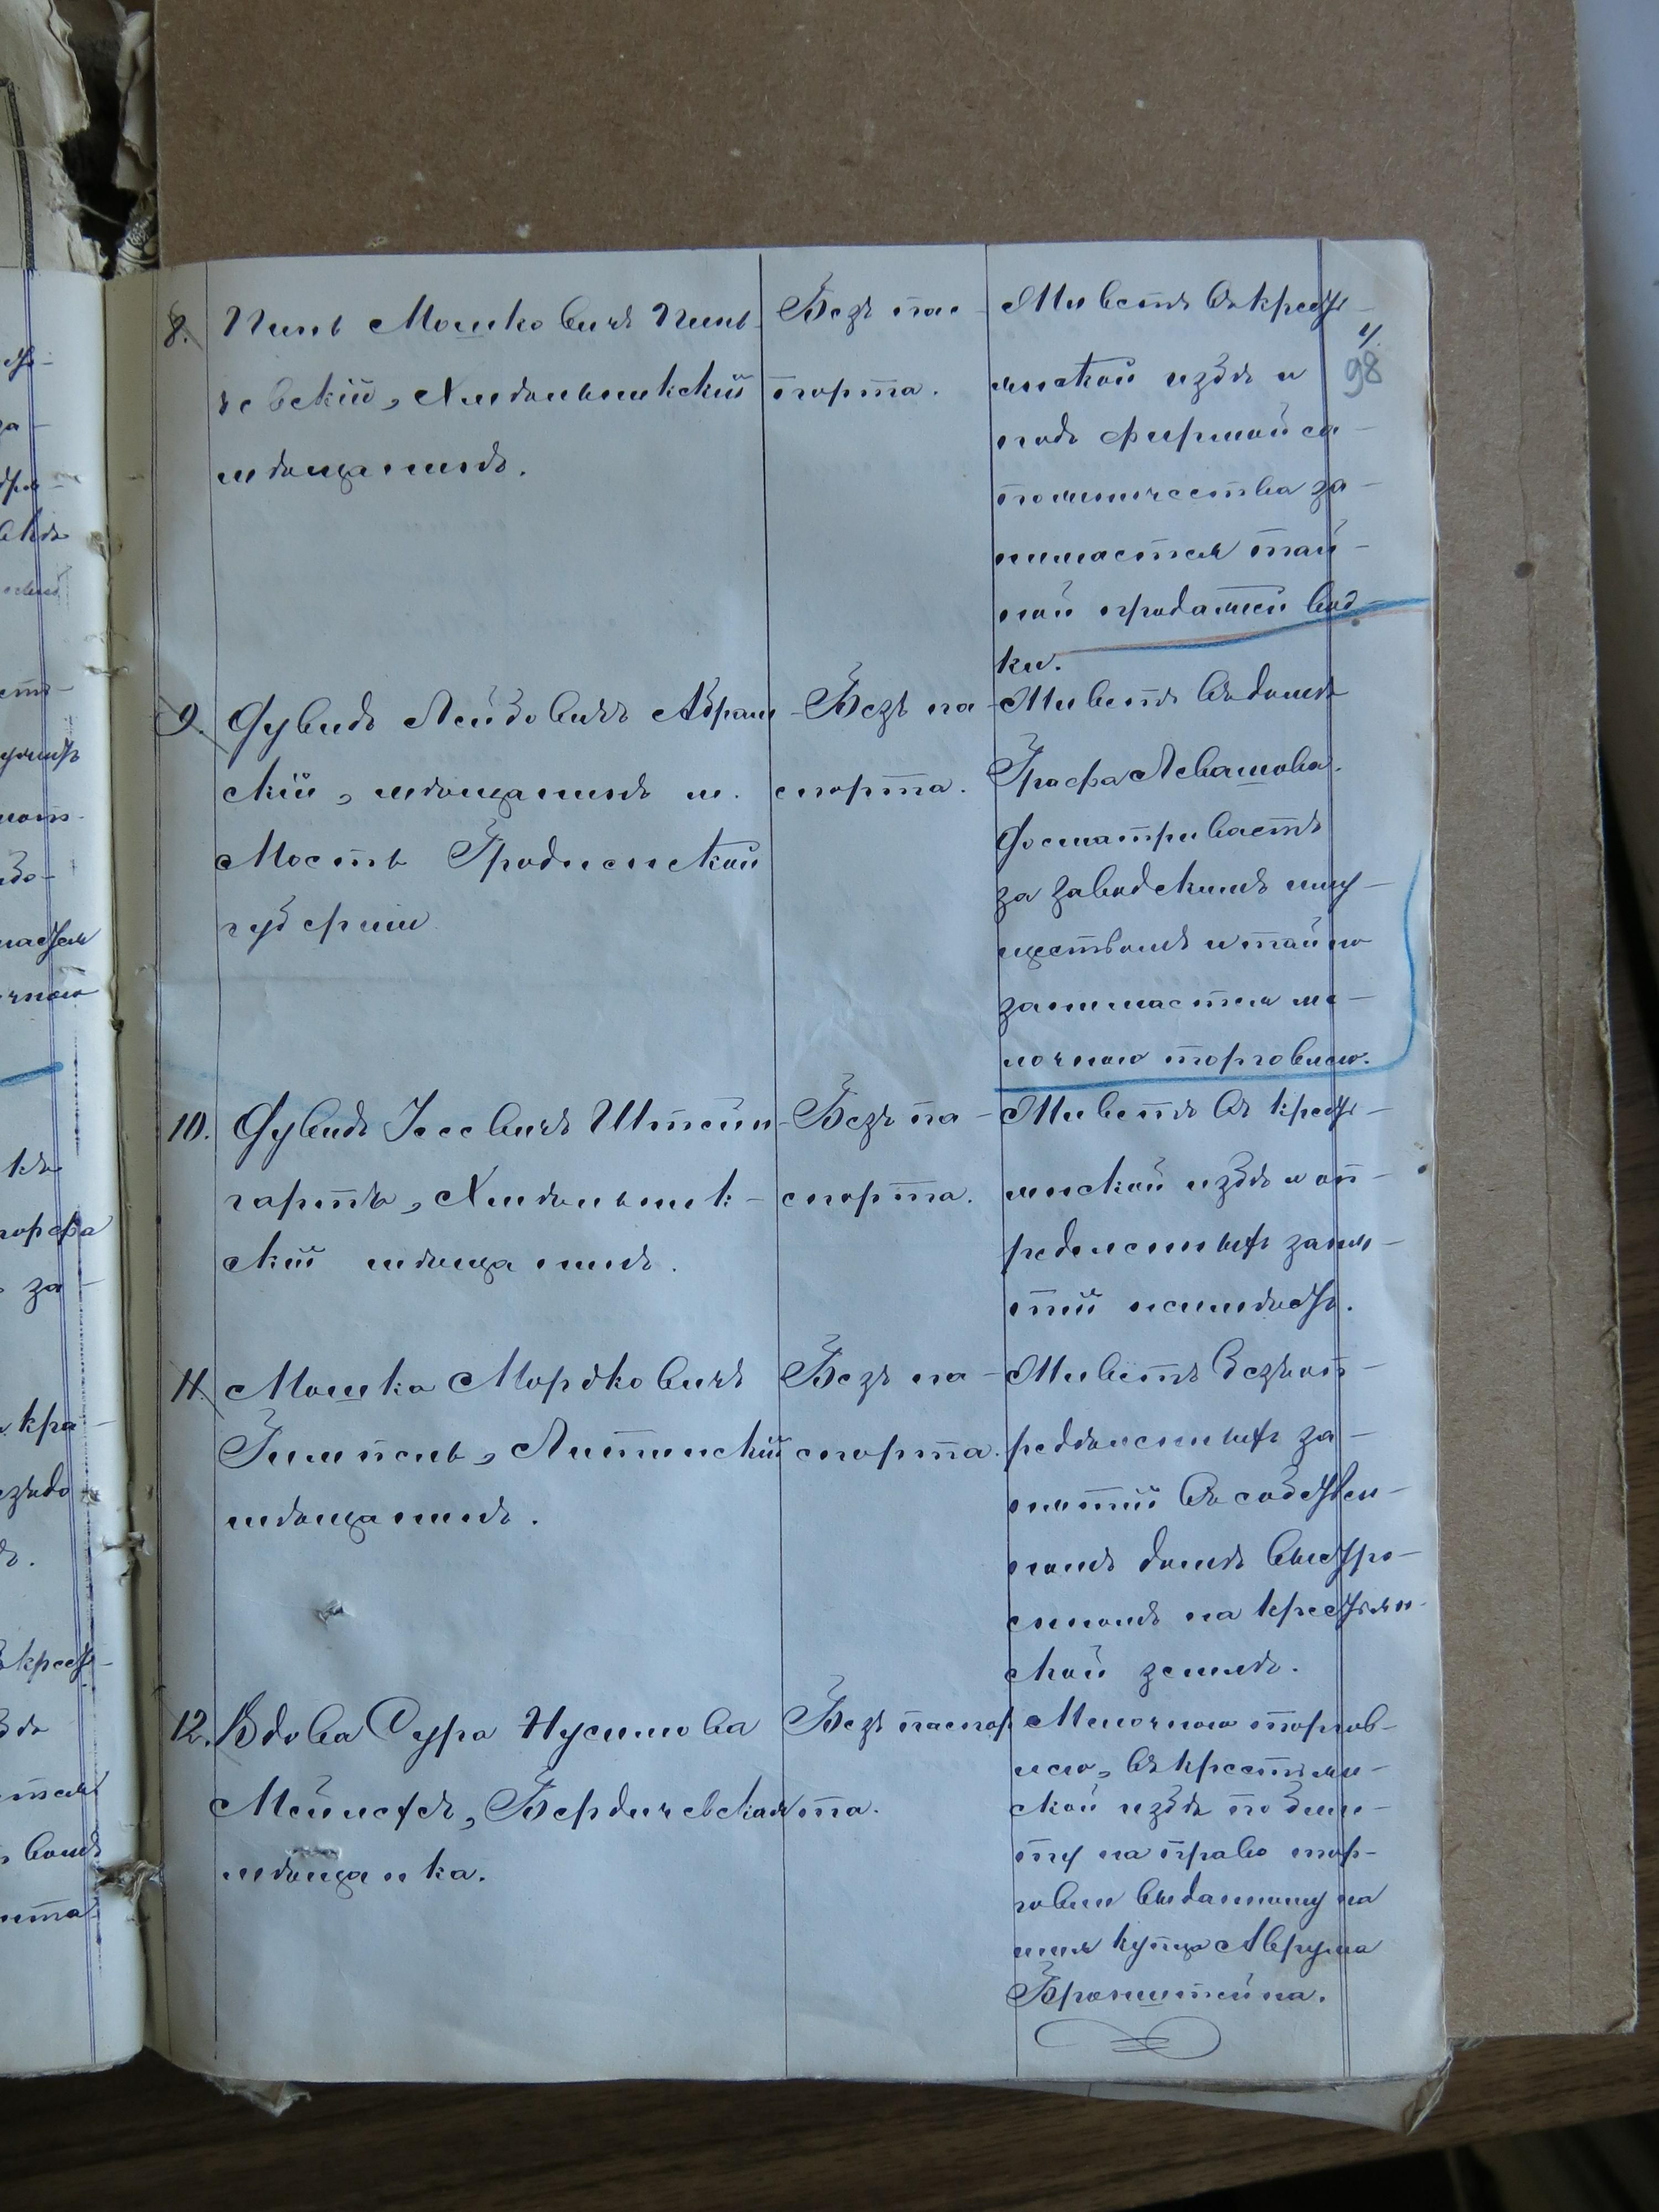 4.
98
8. Пинь Мошковичъ Пинь-
чевскій, Хмѣльникскій
мѣщанинъ.
Безъ пас-
порта.
Живетъ въ кресть-
янской избѣ и
подъ фирмой са-
пожничества за-
нимается тай-
ной продажей вод-
ки.
9. Дувидъ Лейбовичъ Абрам-
скій, мѣщанинъ м.
Мосты Гродненской
губерніи
Безъ па-
спорта.
Живетъ въ домѣ
Графа Левашова.
Досматриваетъ
за заводскимъ иму-
ществомъ и тайно
занимается ме-
лочною торговлею.
10. Дувидъ Іосевичъ Штейн-
гартъ, Хмѣльник-
скій мѣщанинъ.
Безъ па-
спорта.
Живетъ въ кресть-
янской избѣ и оп-
редѣленныхъ заня-
тій неимѣетъ.
11. Мошка Мордковичъ
Литинскій
мѣщанинъ.
Безъ па-
спорта.
Живетъ безъ оп-
редѣленныхъ за-
нятій въ собствен-
номъ домѣ выстро-
енномъ на крестьян-
ской землѣ.
12. Вдова Сура Нусимова
Бердичевская
мѣщанка.
Безъ паспор
та.
Мелочною торгов-
лею, въ крестьян-
ской избѣ по биле-
ту на право тор-
говли выданному на
имя купца Аврума
Бронштейна.